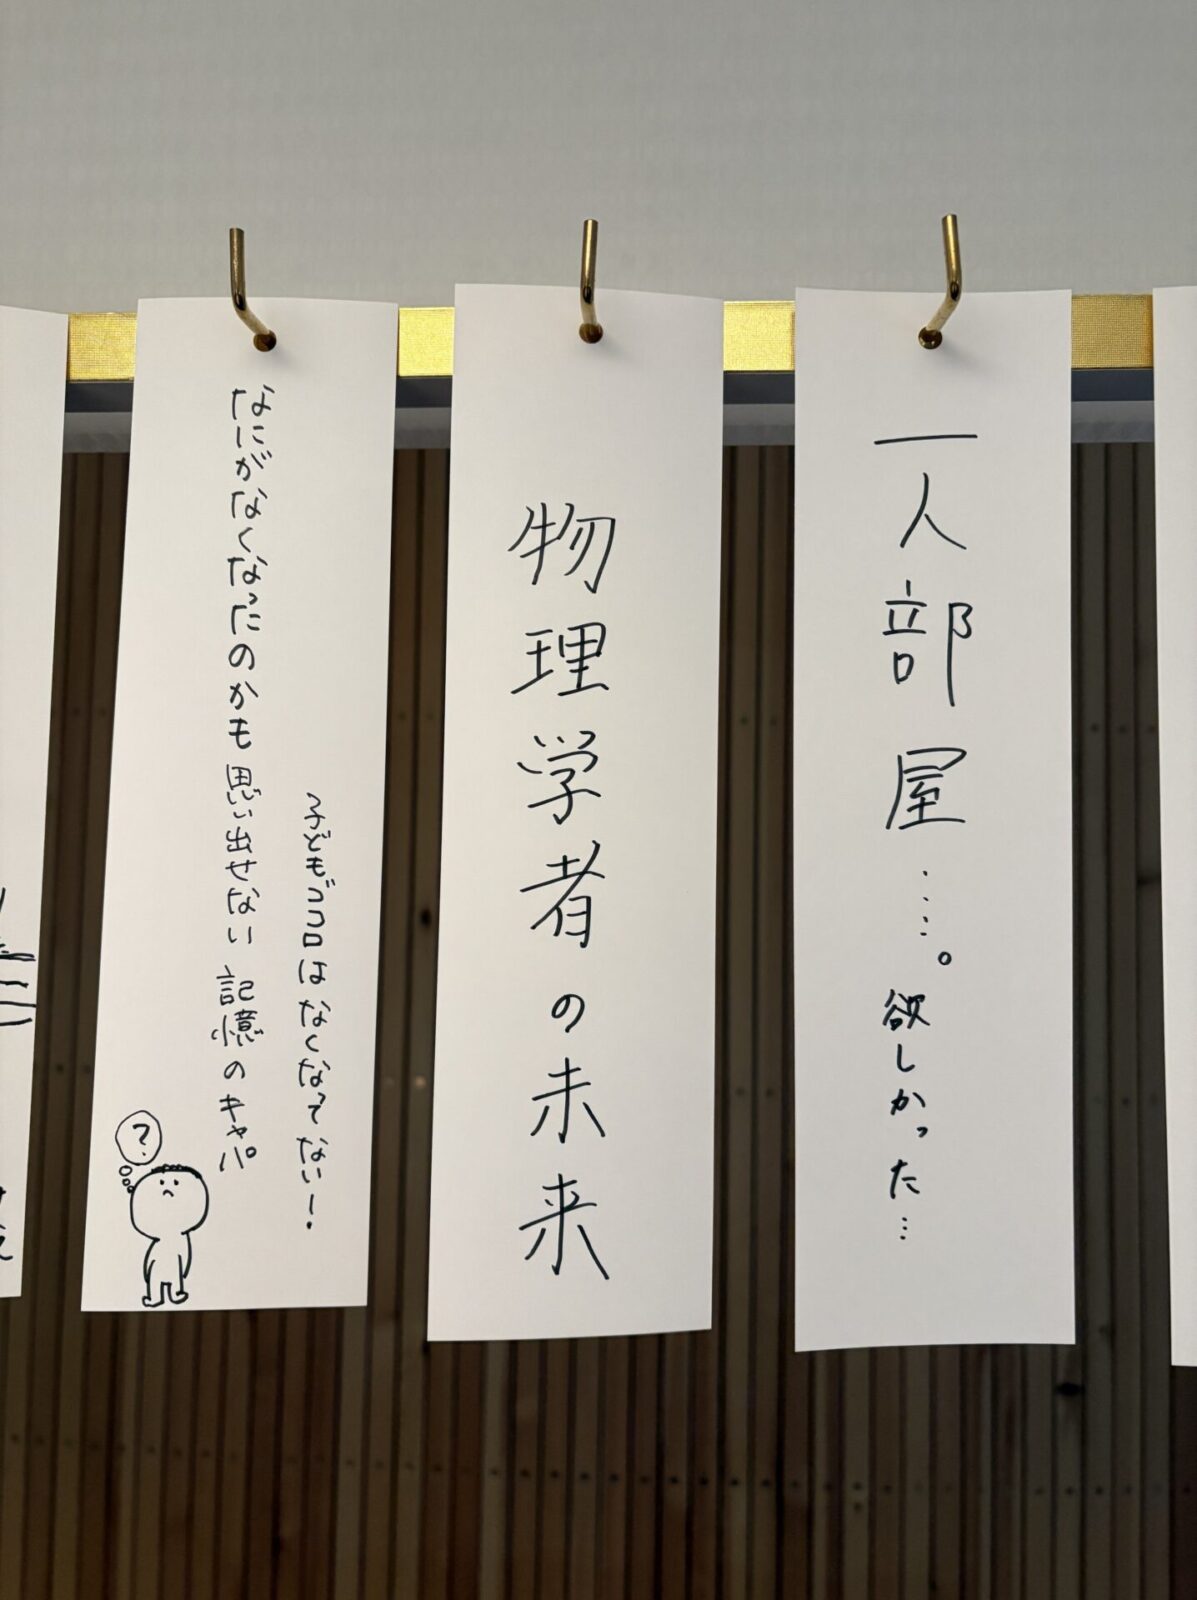 一人部屋……。欲しかった…
物理学者の未来
子どもゴコロはなくなってない！
なにがなくなったのかも思い出せない記憶のキャパ
?